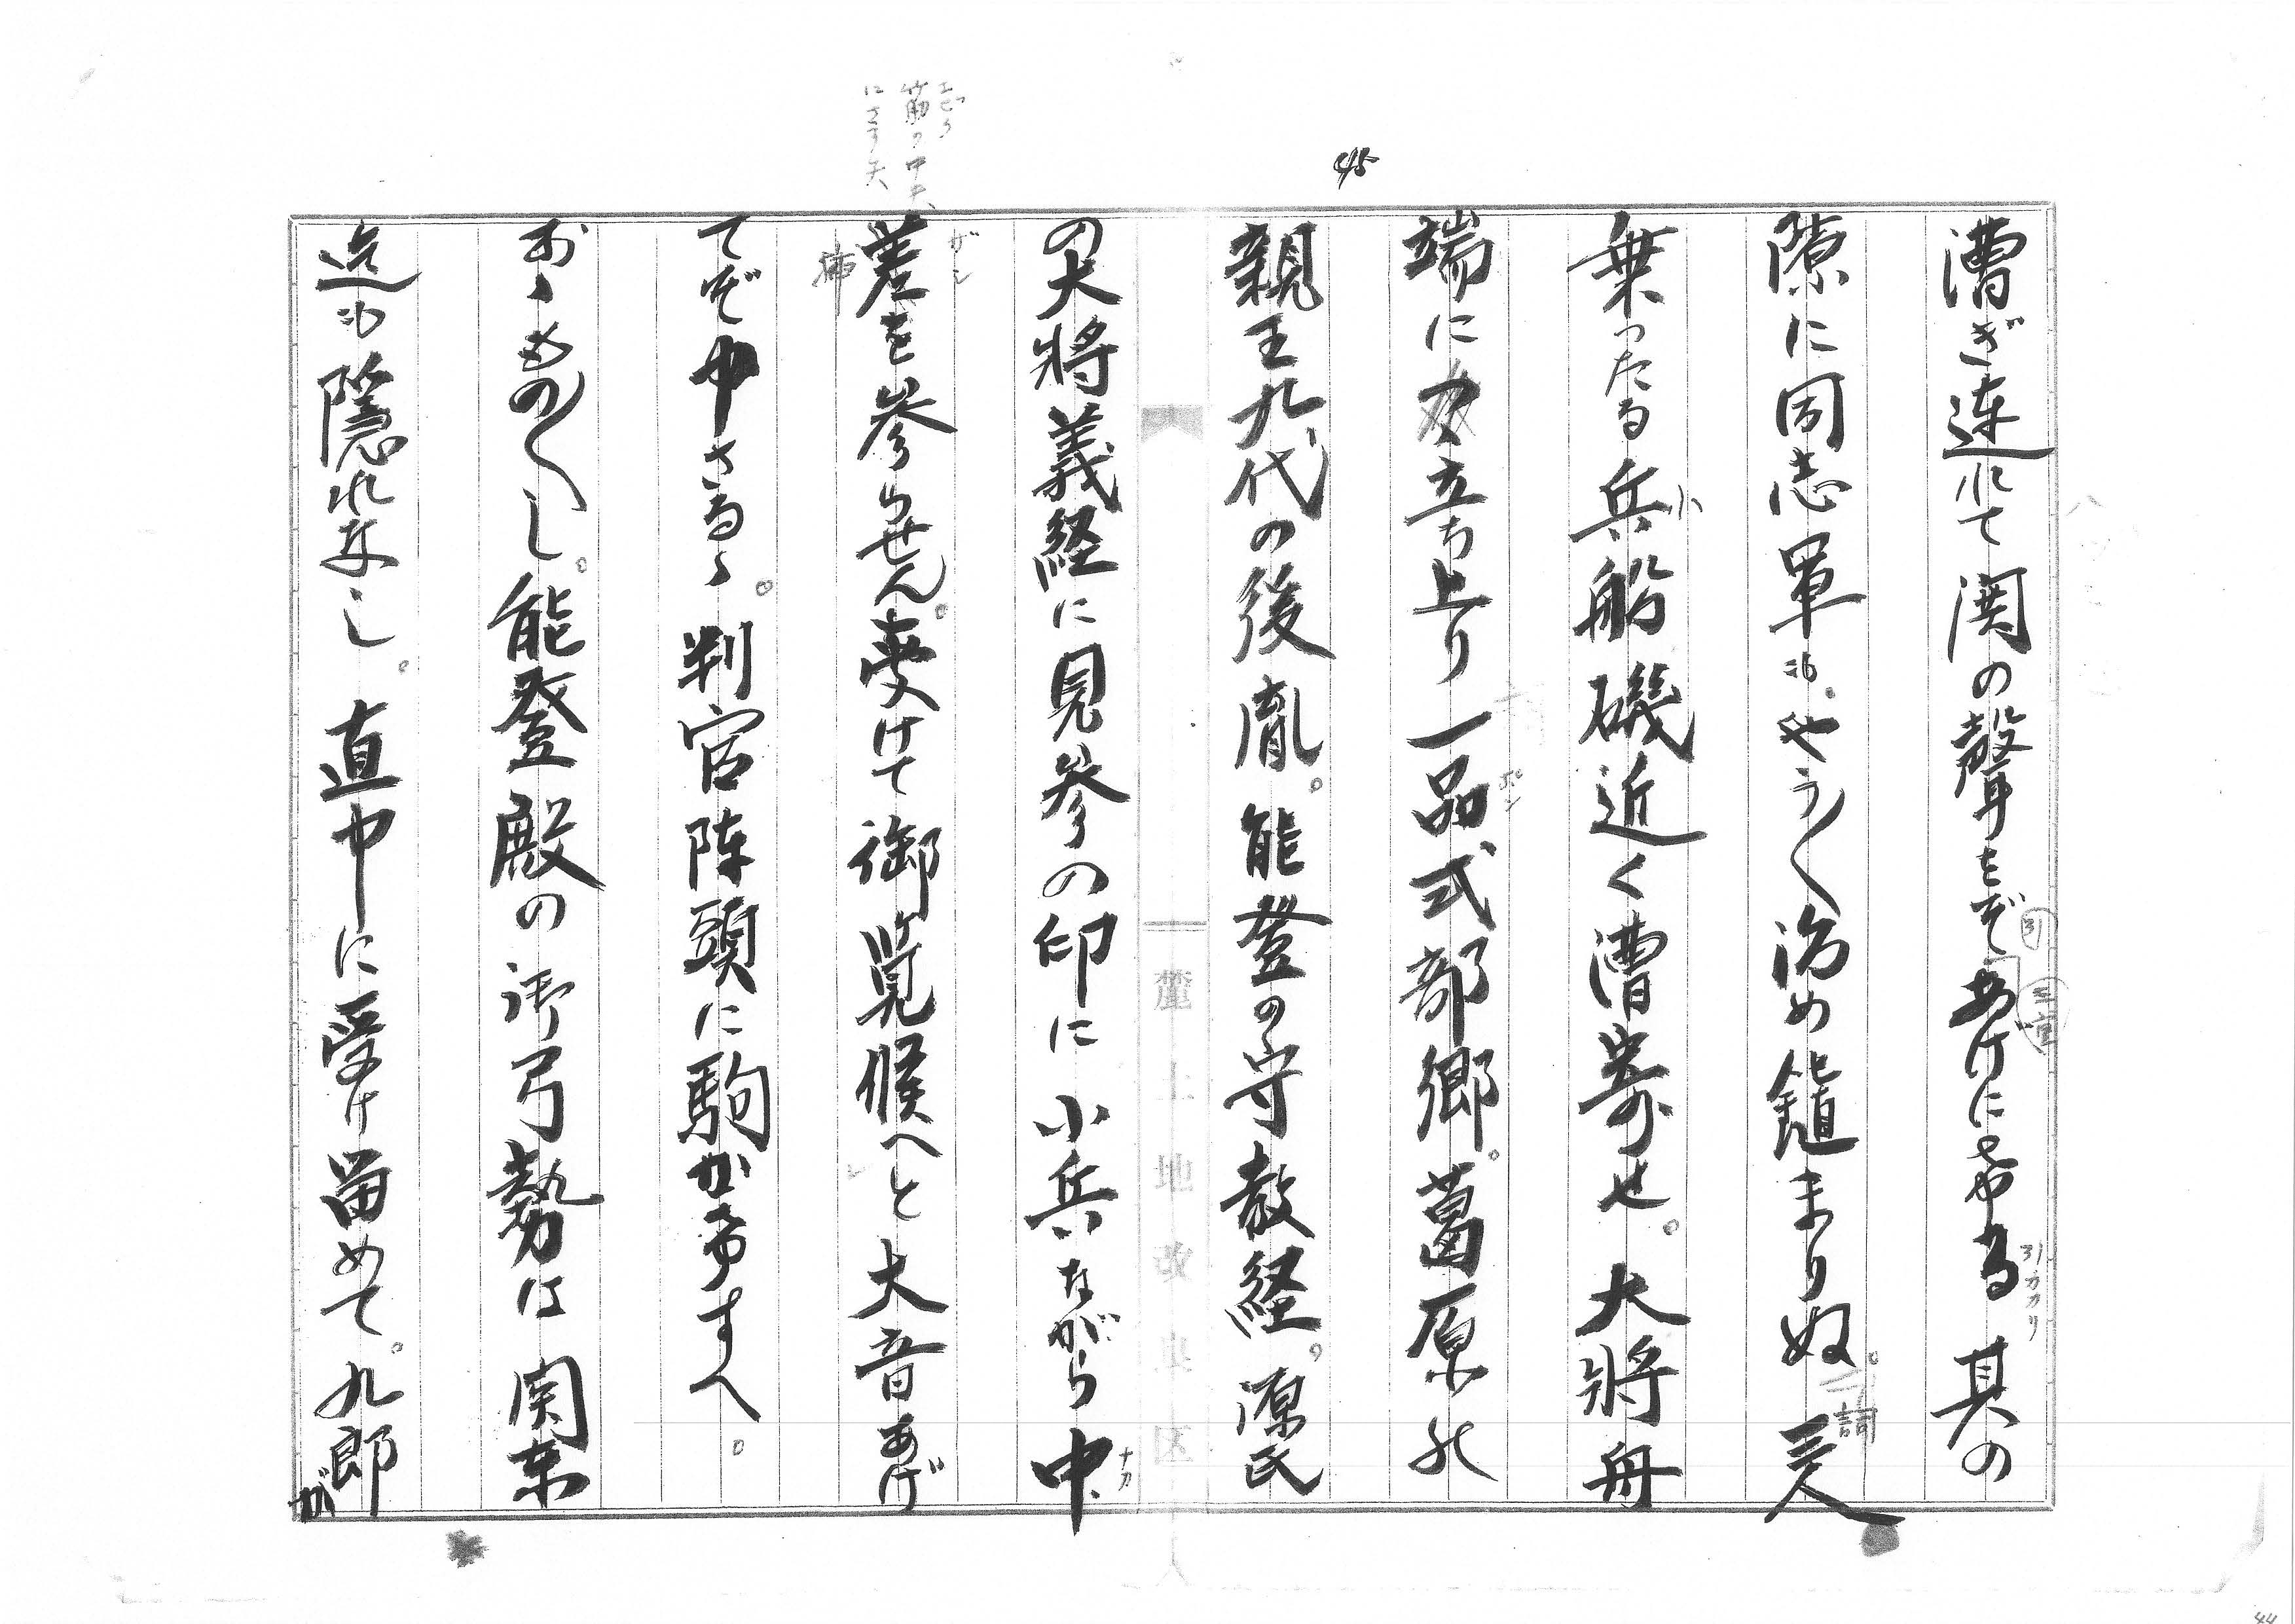 45
漕ぎ連れて関の聲をぞあげにける 其の
隙に同志軍も。やう〳〵治め鎮まり奴。三人
乗ったる兵船磯近く漕寄せ。大將舟
端に立ち上り一品式部郷。葛原の
親王九代の後胤。能登の守教経。源氏
の大將義経に見参の印に小兵ながら中
差を参らせん。受けて御覧候へと大音あげ
てぞ申さるゝ。判官陣頭に駒かけすへ。
おゝものものし。能登殿の御弓勢は関東
迄も隠れなし。直中に受け留めて。九郎
が
引
詞
小
ポン
ナカ
ガシ
エビラ
筋の中央
にさす矢
44